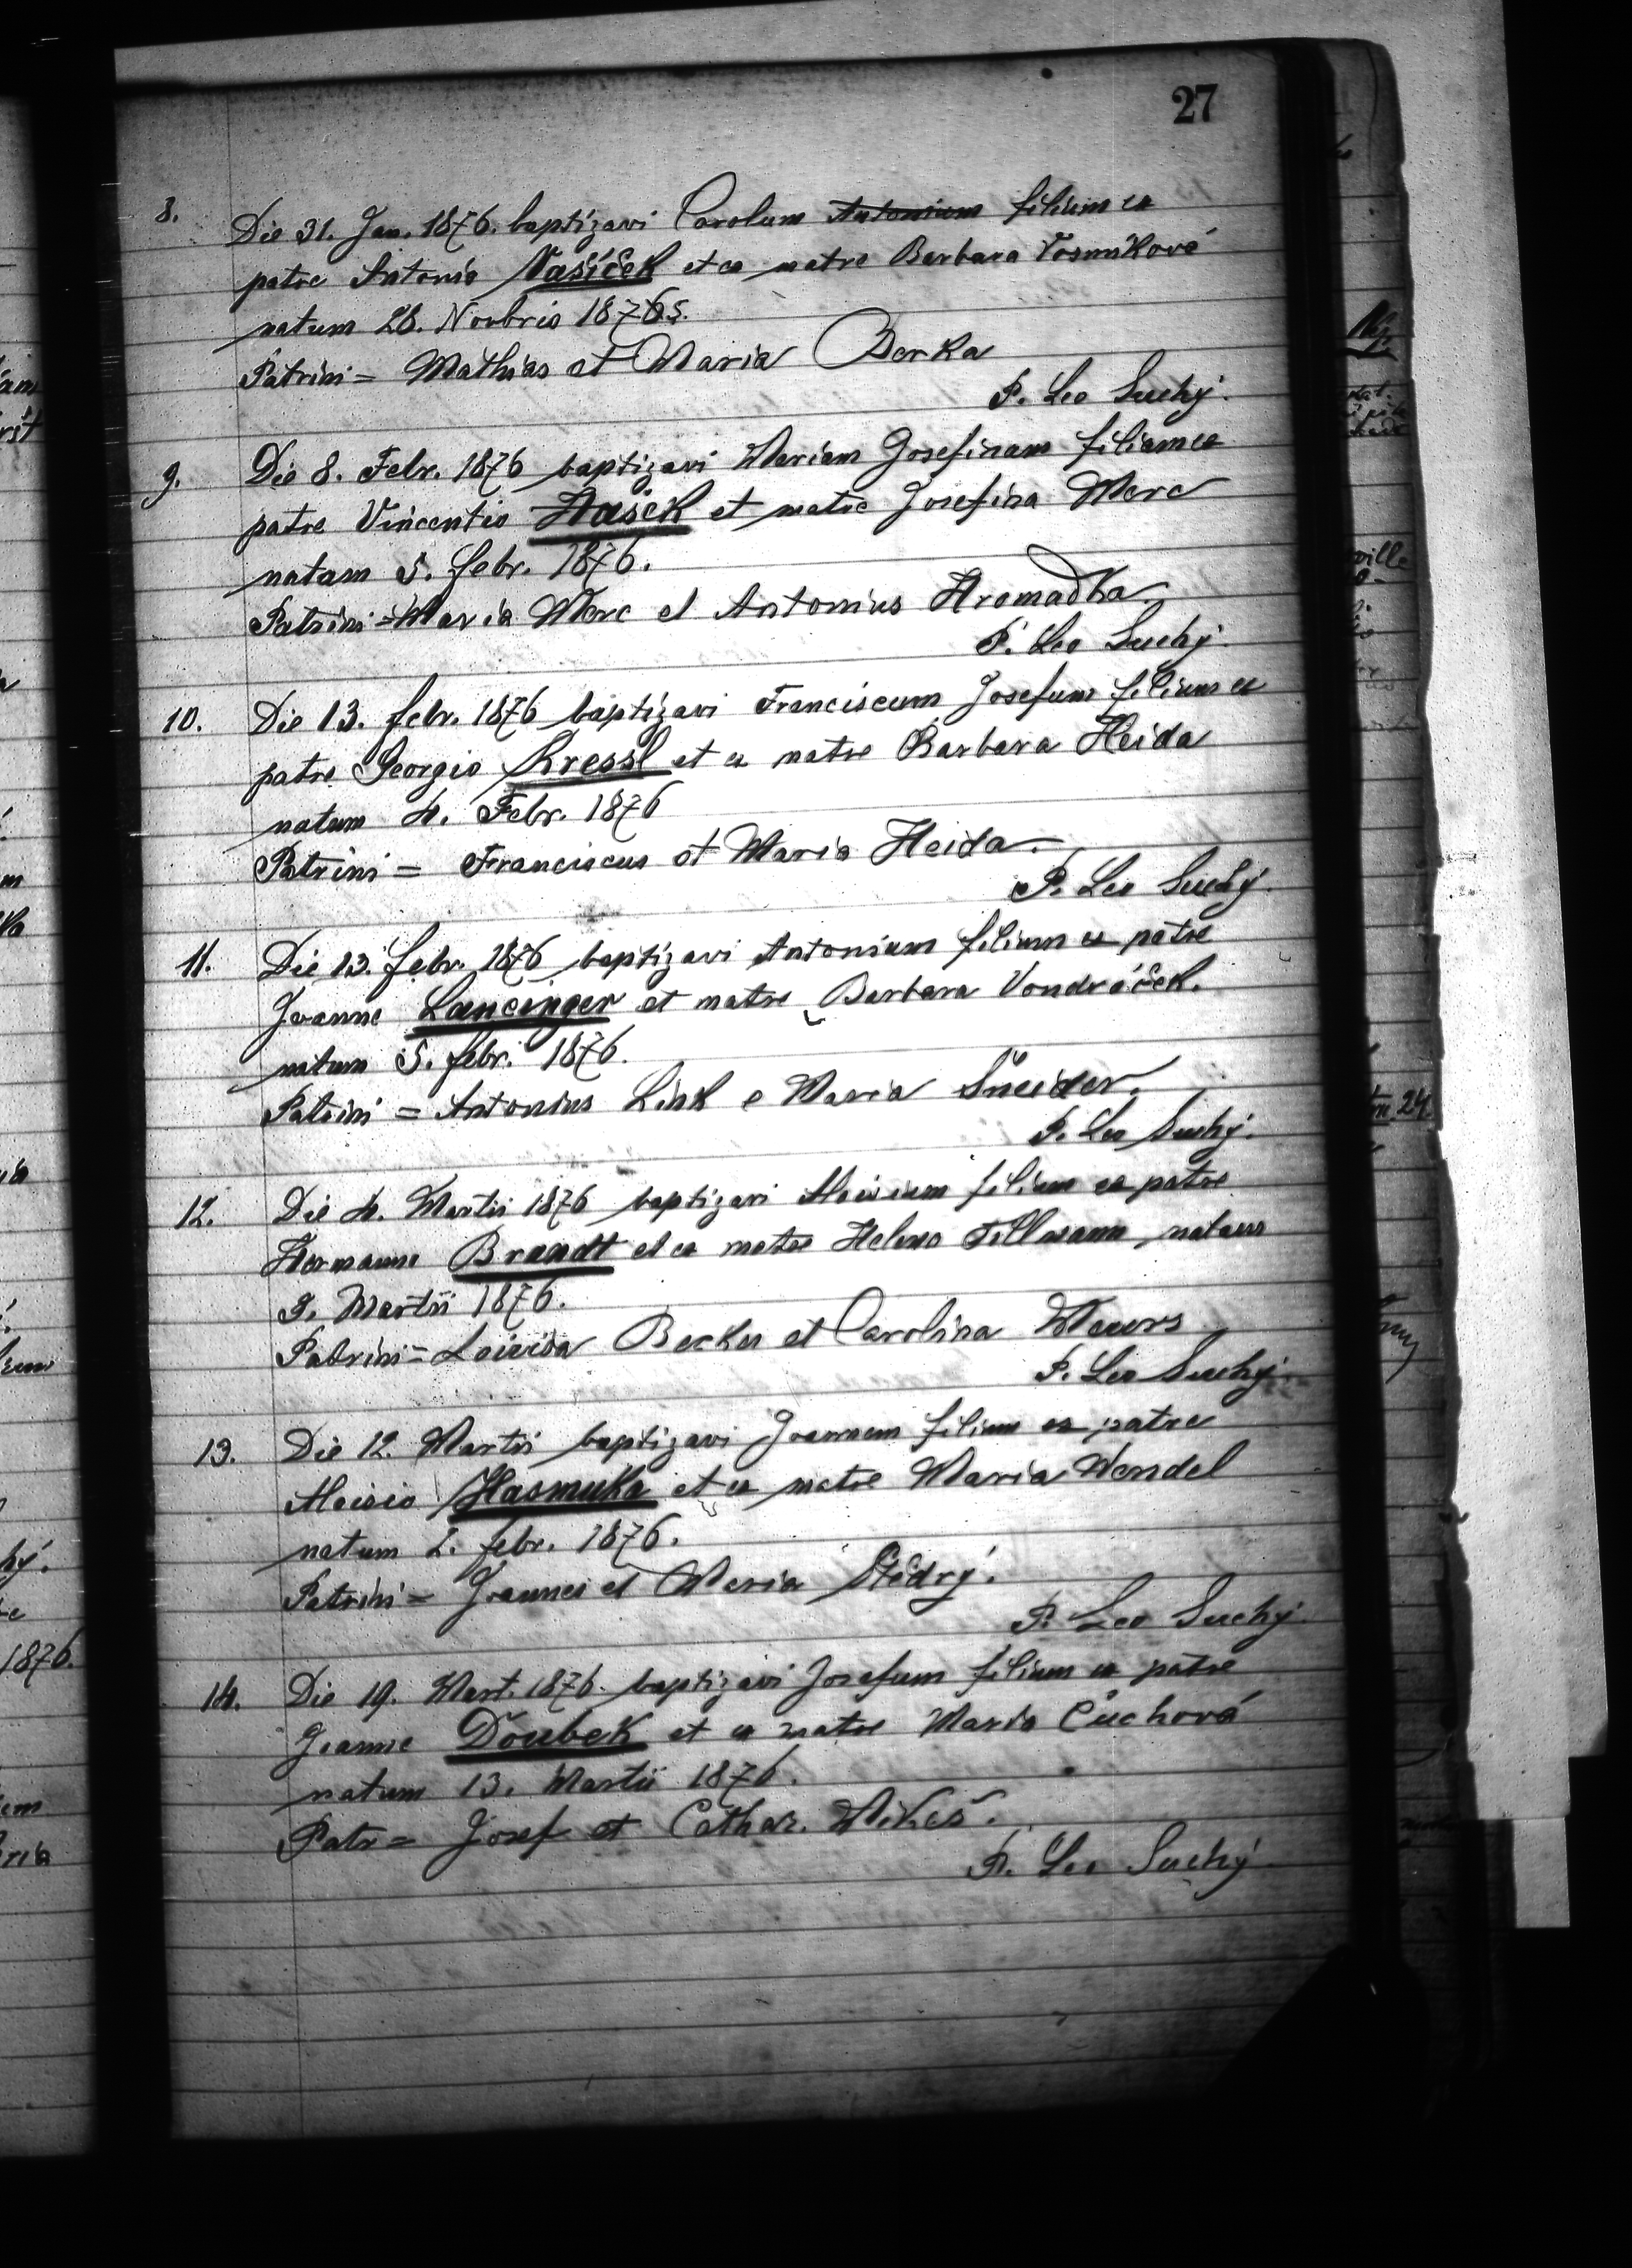 27
8. Die 31. Jan. 1876. baptizavi Carolum Antonium filium ex
patre Antonio Vašíček et ex matre Barbara Vosmíková
natum 28. Novbris 1875.
Patrini = Mathias et Maria Berka
P. Leo Suchý.
9. Die 8. Febr. 1876 baptizavi Mariam Josefinam filiam ex
patre Vincentio Hašek et matre Josefina Merc
natam 5. febr. 1876.
Patrini = Maria Merc et Antonius Hromadka
P. Leo Suchý.
10. Die 13. febr. 1876 baptizavi Franciscum Josefum filium ex
patre Georgio Kressl et ex matre Barbara Heida
natum 4. Febr. 1876
Patrini = Franciscus et Maria Heida.
P. Leo Suchý.
11. Die 13. febr. 1876 baptizavi Antonium filium ex patre
Joanne Lancinger et matre Barbara Vondráček.
natum 5. febr. 1876.
Patrini = Antonius Link e Maria Šneider.
P. Leo Suchý.
12. Die 4. Martii 1876 baptizavi Aloisium filium ex patre
Hermanno Brandt et ex matre Helena Tillmann, natum
Martii 1876.
Patrini = Loisia Becker et Carolina Meurs
P. Leo Suchý.
13. Die 12. Martii baptizavi Joannem filium ex patre
Aloisio Hasmuka et ex matre Maria Wendel
natum 2. febr. 1876.
Patrini = Joannes et Maria Štědrý.
P. Leo Suchý.
14. Die 19. Mart. 1876. baptizavi Josefum filium ex patre
Joanne Doubek et ex matre Maria Čuchová
natum 13. Martii 1876.
Patr = Josef et Cathar. Mikeš.
P. Leo Suchý